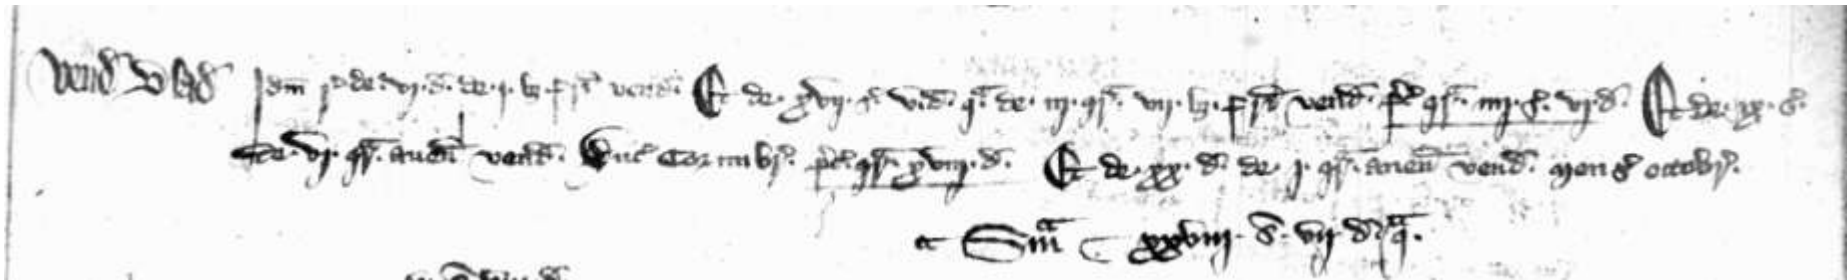 Vend' Blad' Idm r' de vj d' de j b3 frī vend' Et de xvij s' v d' q̄ de iij qr̄ vij b3 frī vend' p'c' qr̄ iiij s' vj d' Et de xx s'
de vj qr̄ auen' vend' p'c' qr̄ xviij d' Et de xx d' de j qr̄ auen' vend' mens' octobr'
Sm̄a xxviij s' vij d' q̄